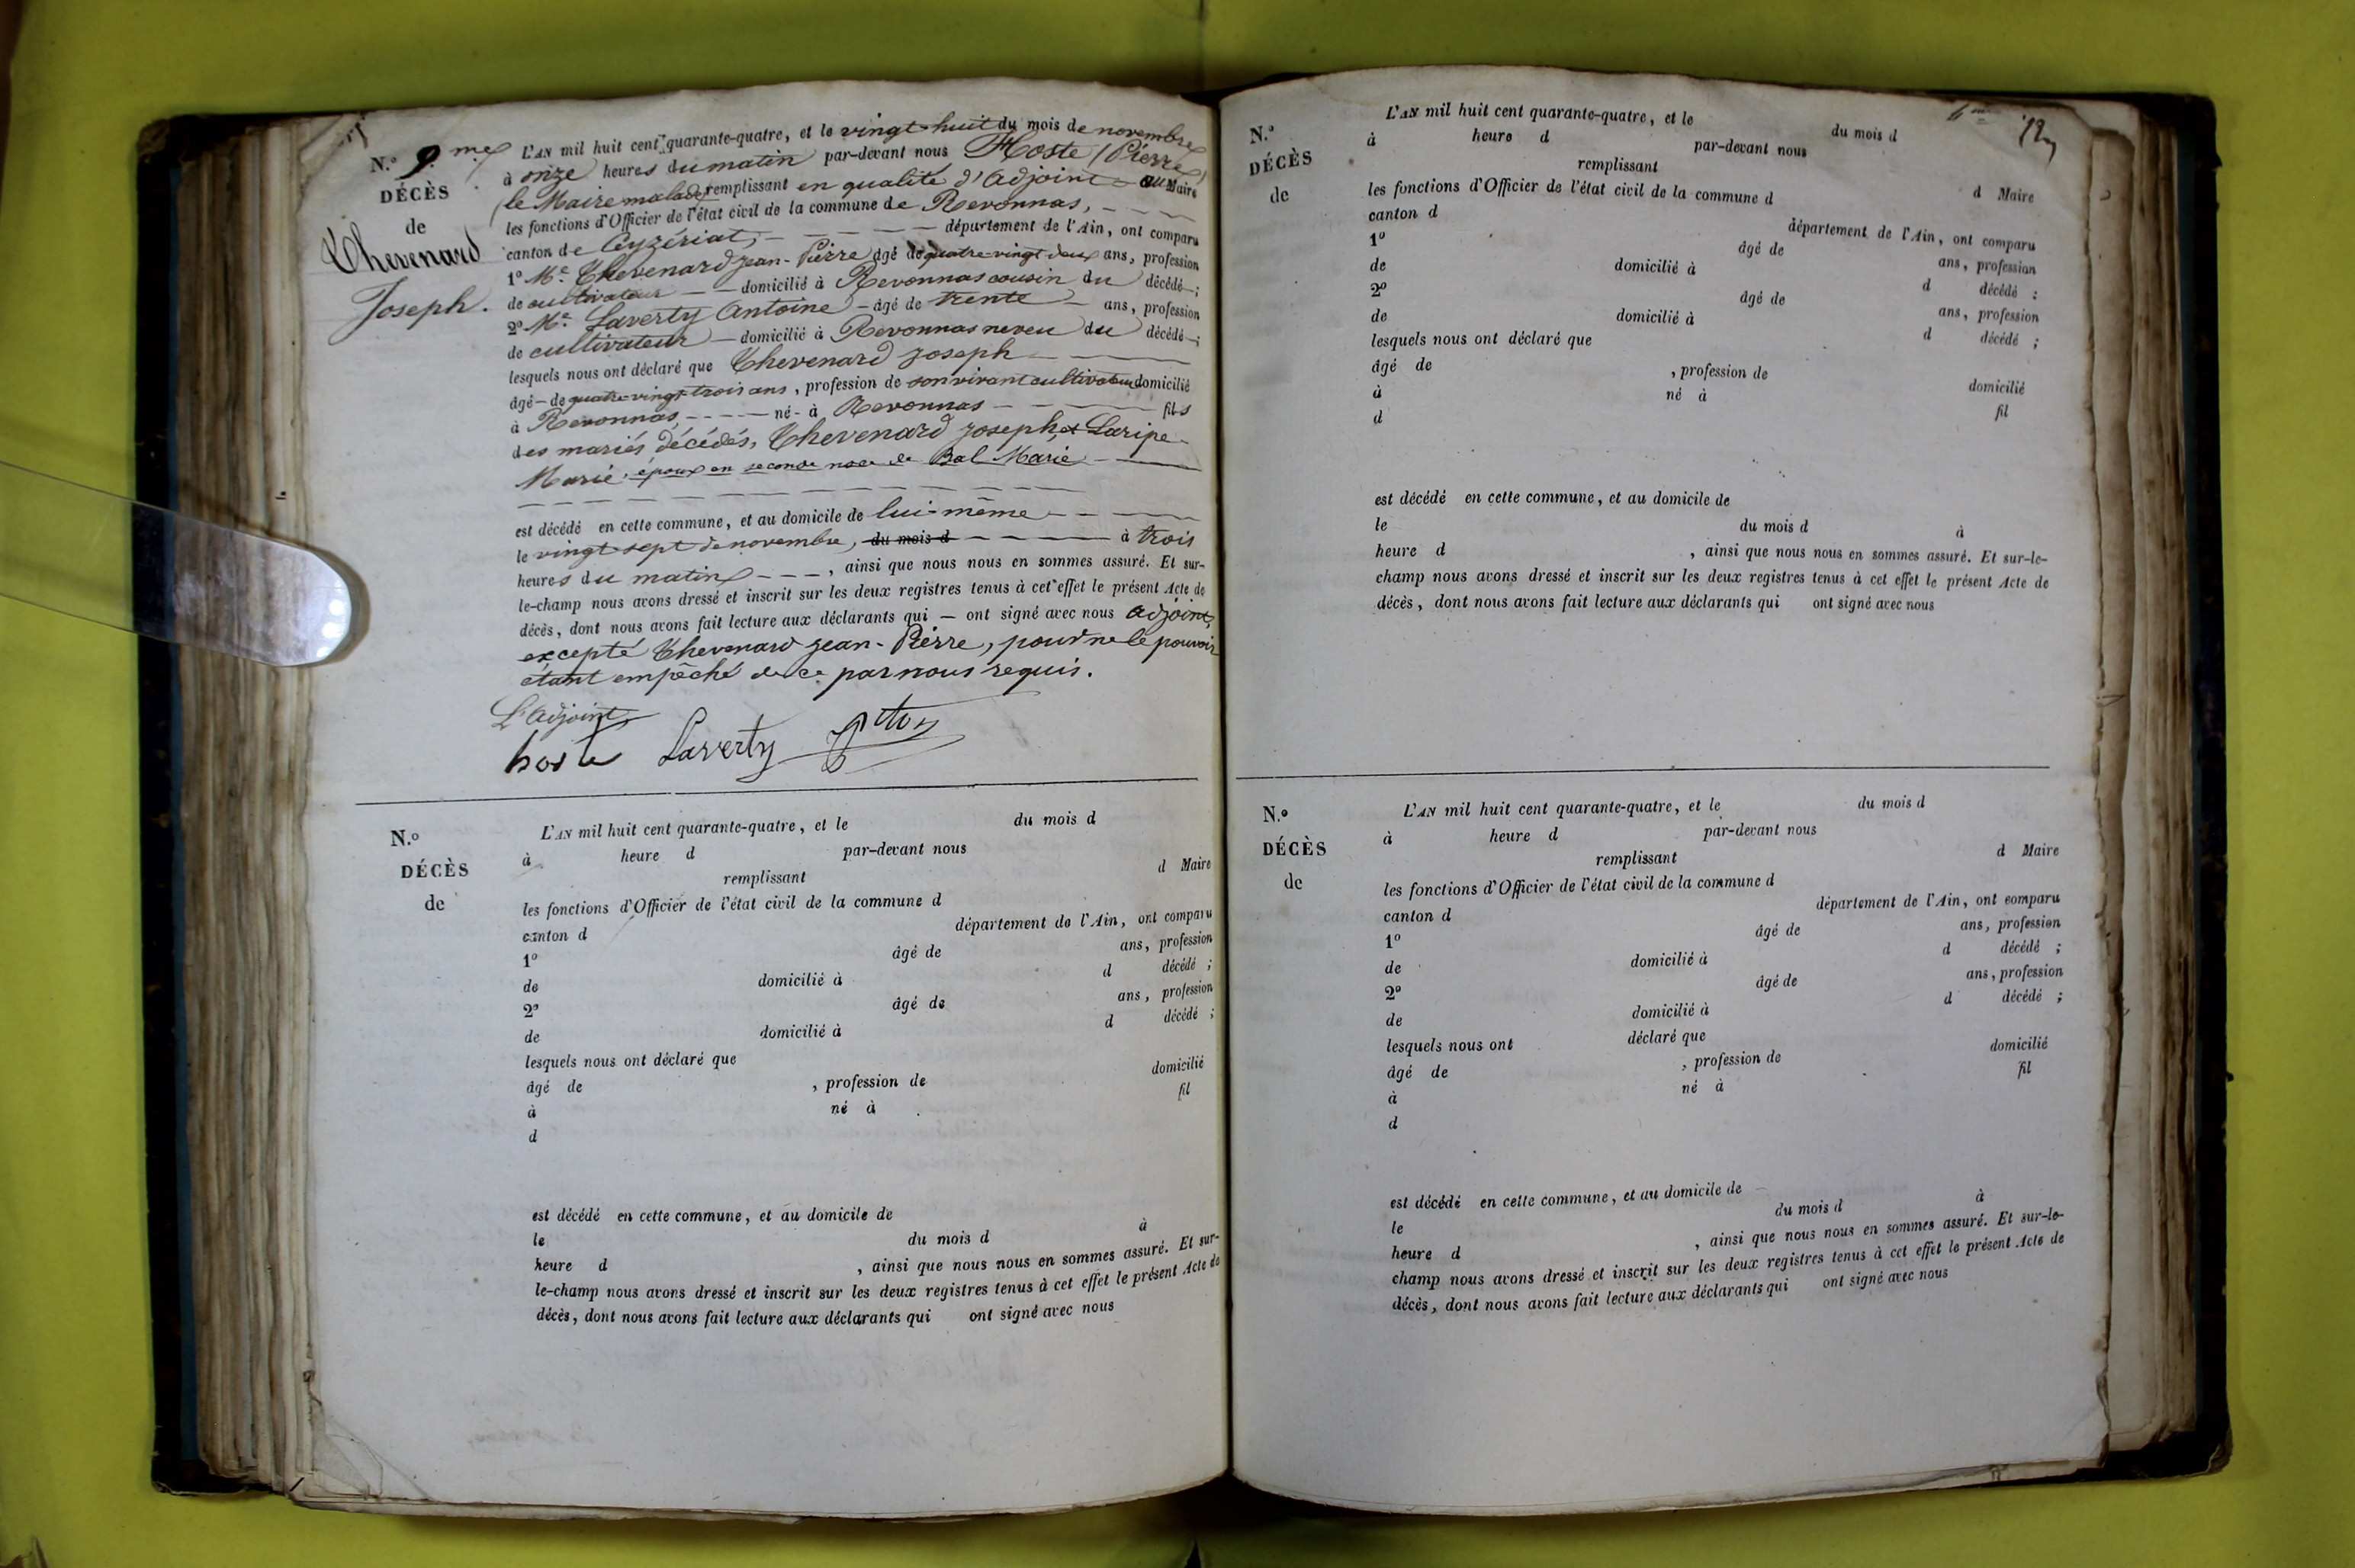 N.º 9.me
DÉCÈS
de
Chevenard
Joseph.
L'AN mil huit cent quarante-quatre, et le vingt-huit du mois de novembre
à onze heures du matin par-devant nous Hoste (Pierre)
(le Maire malade) remplissant en qualité d'Adjoint au Maire
les fonctions d'Officier de l'état civil de la commune de Revonnas,
canton de Ceyzériat, département de l'Ain, ont comparu
1º Mr. Chevenard jean-Pierre âgé de quatre-vingt deux ans, profession
de cultivateur domicilié à Revonnas cousin du décédé ;
2º Mr. Laverty Antoine âgé de trente ans, profession
de cultivateur domicilié à Revonnas neveu du décédé ;
lesquels nous ont déclaré que Chevenard joseph
âgé de quatre-vingt-trois ans, profession de son vivant cultivateur domicilié
à Revonnas né à Revonnas fils
des mariés décédés, Chevenard joseph, et Laripe
Marie, époux en seconde noce de Bal Marie
est décédé en cette commune, et au domicile de lui-même
le vingt-sept de novembre, du mois d à trois
heures du matin , ainsi que nous nous en sommes assuré. Et sur-
le-champ nous avons dressé et inscrit sur les deux registres tenus à cet effet le présent Acte de
décès, dont nous avons fait lecture aux déclarants qui — ont signé avec nous Adjoint,
excepté Chevenard jean-Pierre, pour ne le pouvoir
étant empêché de ce par nous requis.
L'adjoint
hoste Laverty
N.º
DÉCÈS
de
L'AN mil huit cent quarante-quatre, et le du mois d
à heure d par-devant nous
remplissant d Maire
les fonctions d'Officier de l'état civil de la commune d
canton d département de l'Ain, ont comparu
1º âgé de ans, profession
de domicilié à d décédé ;
2º âgé de ans, profession
de domicilié à d décédé ;
lesquels nous ont déclaré que
âgé de , profession de domicilié
à né à fil
d
est décédé en cette commune, et au domicile de
le du mois d à
heure d , ainsi que nous nous en sommes assuré. Et sur-
le-champ nous avons dressé et inscrit sur les deux registres tenus à cet effet le présent Acte de
décès, dont nous avons fait lecture aux déclarants qui ont signé avec nous
12
N.º
DÉCÈS
de
L'AN mil huit cent quarante-quatre, et le du mois d
à heure d par-devant nous
remplissant d Maire
les fonctions d'Officier de l'état civil de la commune d
canton d département de l'Ain, ont comparu
1º âgé de ans, profession
de domicilié à d décédé ;
2º âgé de ans, profession
de domicilié à d décédé ;
lesquels nous ont déclaré que
âgé de , profession de domicilié
à né à fil
d
est décédé en cette commune, et au domicile de
le du mois d à
heure d , ainsi que nous nous en sommes assuré. Et sur-le-
champ nous avons dressé et inscrit sur les deux registres tenus à cet effet le présent Acte de
décès, dont nous avons fait lecture aux déclarants qui ont signé avec nous
N.º
DÉCÈS
de
L'AN mil huit cent quarante-quatre, et le du mois d
à heure d par-devant nous
remplissant d Maire
les fonctions d'Officier de l'état civil de la commune d
canton d département de l'Ain, ont comparu
1º âgé de ans, profession
de domicilié à d décédé ;
2º âgé de ans, profession
de domicilié à d décédé ;
lesquels nous ont déclaré que
âgé de , profession de domicilié
à né à fil
d
est décédé en cette commune, et au domicile de
le du mois d à
heure d , ainsi que nous nous en sommes assuré. Et sur-le-
champ nous avons dressé et inscrit sur les deux registres tenus à cet effet le présent Acte de
décès, dont nous avons fait lecture aux déclarants qui ont signé avec nous